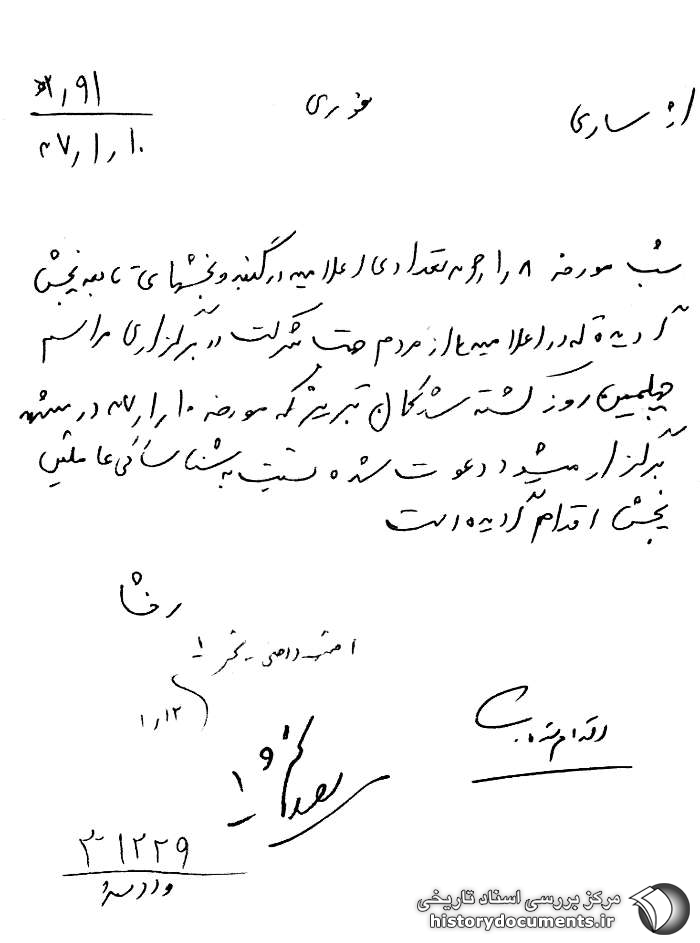 از ساری
فوری
۹۱ر۵۲
۱۰ر۱ر۴۷
شب مورخه ۸ تعدادی اعلامیه در گنبد و بخشهای تابعه پخش
گردیده که در اعلامیه از مردم جهت شرکت در برگزاری مراسم
چهلمین روز کشته شدگان تبریز که مورخه ۱۰ر۱ر۴۷ در
برگزار میشود دعوت شده نسبت به شناسائی عاملین
پخش اقدام گردیده است
رخشا
۱۲ر۱
اقدام شد
۳-۱۲۲۹
وارده
مرکز بررسی اسناد تاریخی
historydocuments.ir